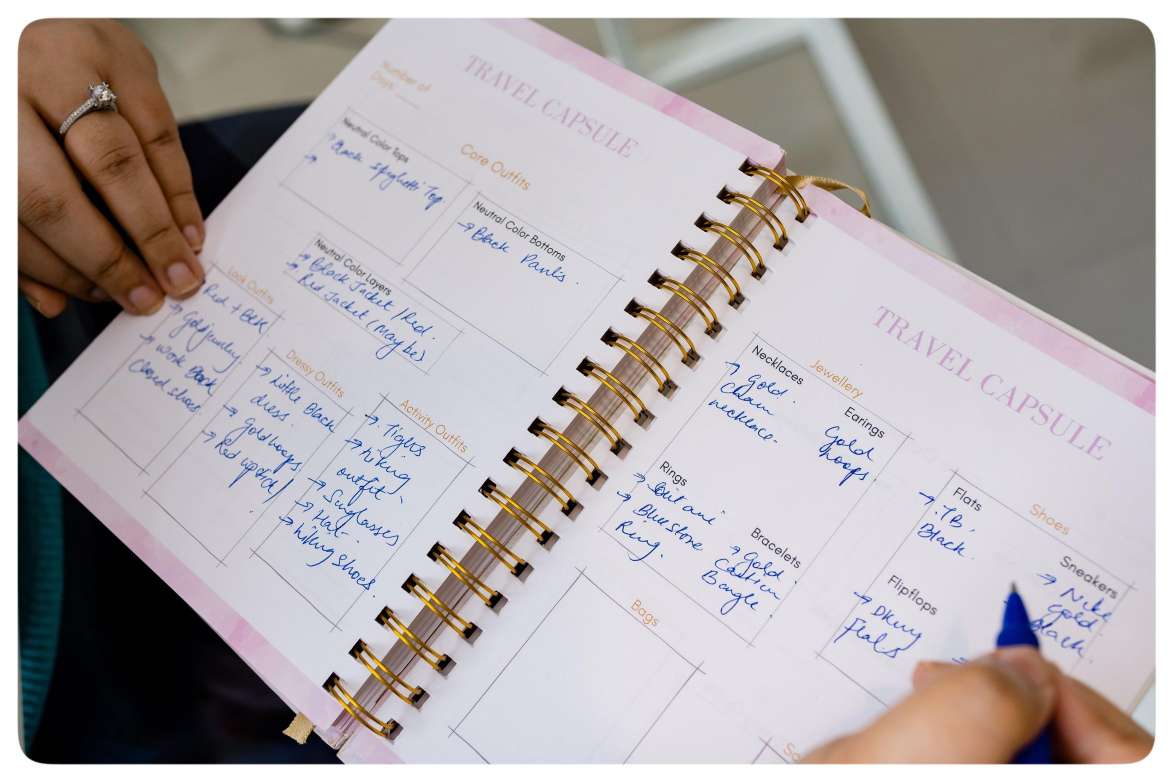 TRAVEL CAPSULE
Number of
Days
Core Outfits
Neutral Color Tops
→ Black Spaghetti Top
→
Neutral Color Bottoms
→ Black Pants.
Neutral Color Layers
→ Black Jacket / Red.
→ Red Jacket (Maybe)
Look Outfits
→ Red + Blk.
→ Gold jewelry.
→ Work Black
Closed shoes.
Dressy Outfits
→ Little Black
dress.
→ Gold hoops
→ Red lipstick/
Activity Outfits
→ Tigers
→ hiking
outfit
→ Sunglasses
→ Hat-
→ hiking shoes.
TRAVEL CAPSULE
Jewellery
Necklaces
→ Gold.
Chain
necklace-
Earings
Gold
hoops.
Rings
→
→ Blue stone
Ring.
Bracelets
→ Gold.
Bangle.
Shoes
Flats
→ TB,
Black.
Sneakers
→ Nike
Gold
Black.
Flipflops
→ DKNY
Flats
Bags